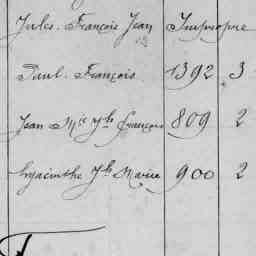 Jules. François Jean Impropre
Paul. François 1392 3
Jean Mie Yh François 809 2
Hyacinthe Jh Marie 900 2